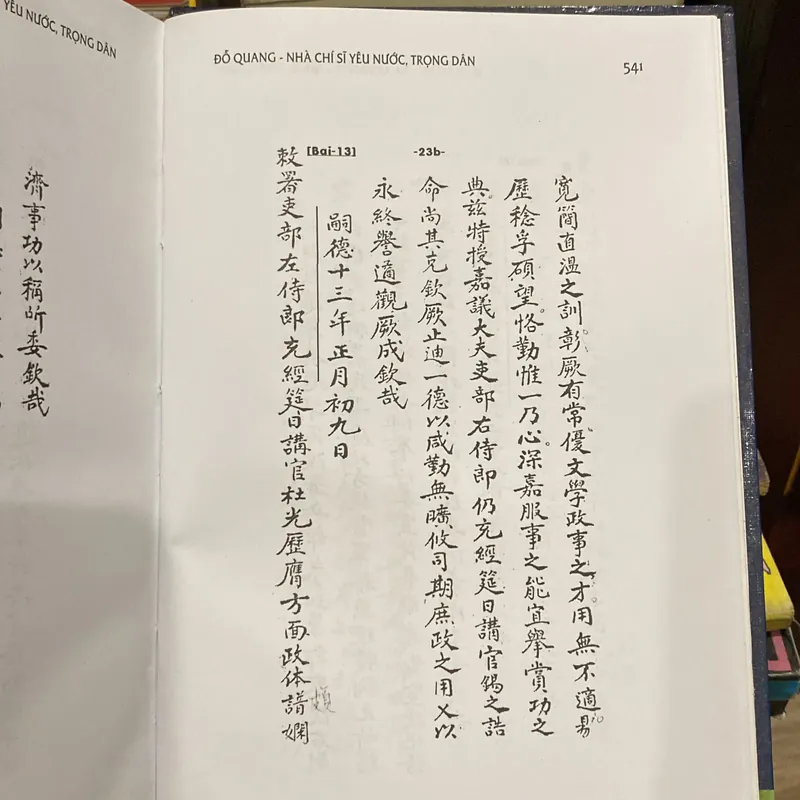 YÊU NƯỚC, TRỌNG DÂN
濟事功以稱所委欽哉
ĐỖ QUANG - NHÀ CHÍ SĨ YÊU NƯỚC, TRỌNG DÂN
541
[Bai-13]
-23b-
寬簡直溫之訓彰厥有常優文學政事之才用無不適易
歷稔孚碩望恪勤惟一乃心深嘉服事之能宜舉賞功之
典茲特授嘉議大夫吏部右侍郎仍充經筵日講官錫之誥
命尚其克欽厥止迪一德以咸勤無曠攸司期庶政之用乂以
永終譽遹觀厥成欽哉
嗣德十三年正月初九日
敕署吏部左侍郎充經筵日講官杜光歷膺方面政体諳嫻